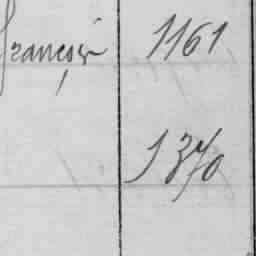 françois 1161
1370